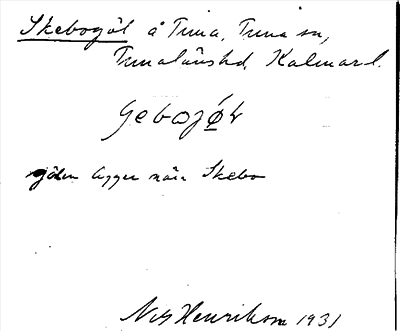 Skebogöl å Tuna, Tuna sn,
Tunaläns hd. Kalmar l.
gölen ligger nära Skebo
Nils Henriksson 1931